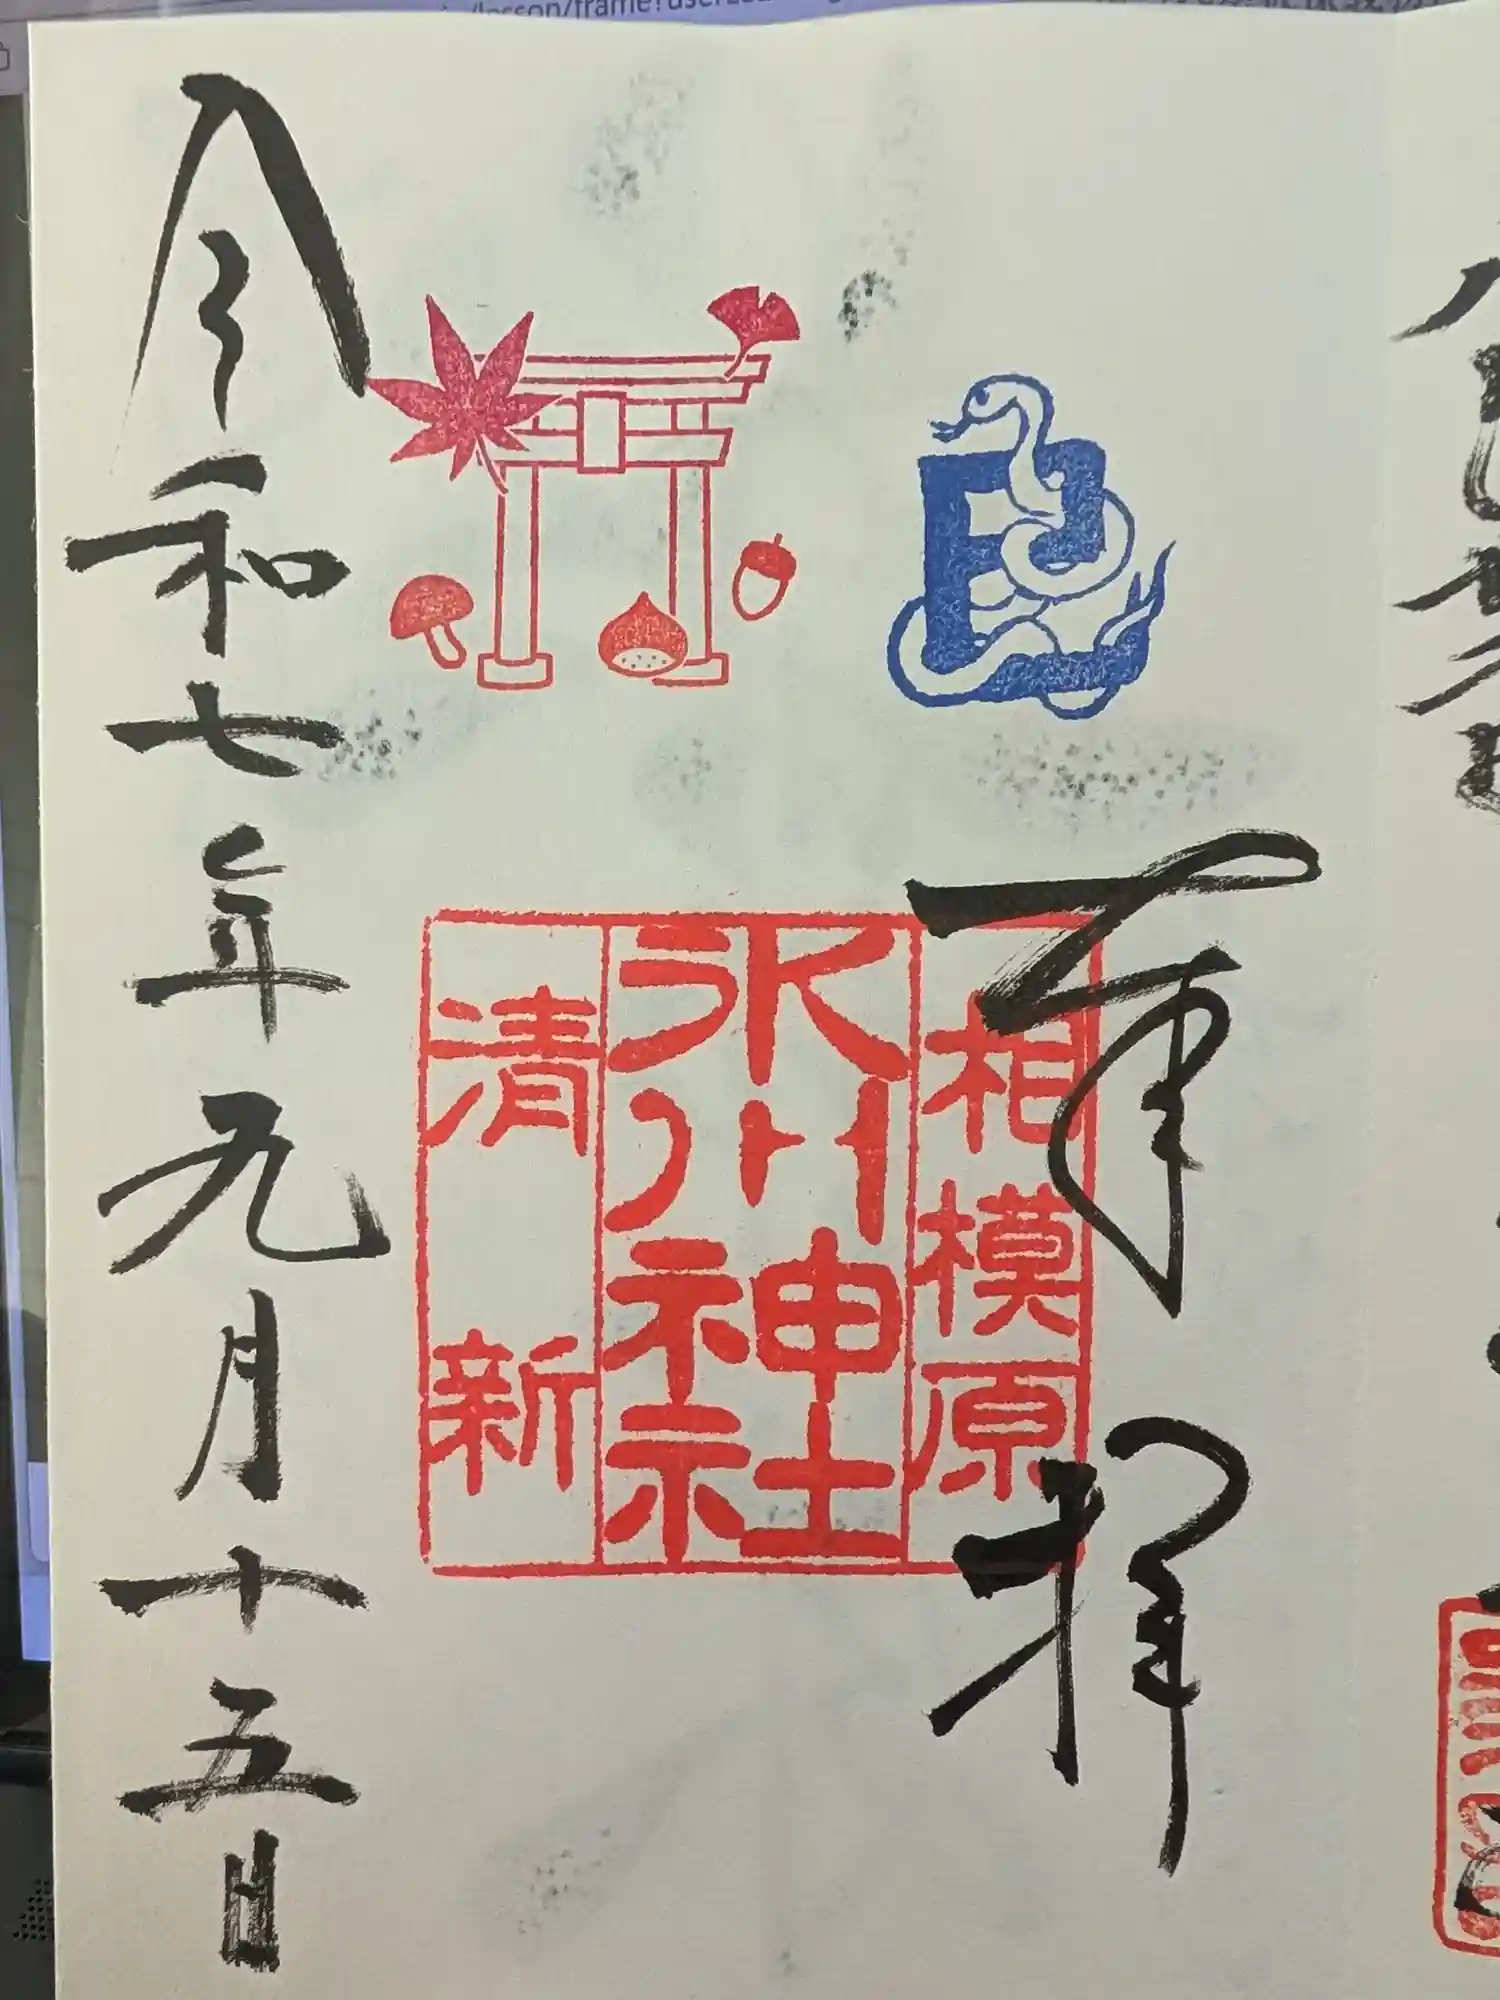 /lesson/frame?
奉拝
巳
相模原
氷川神社
清新
令和七年九月十五日